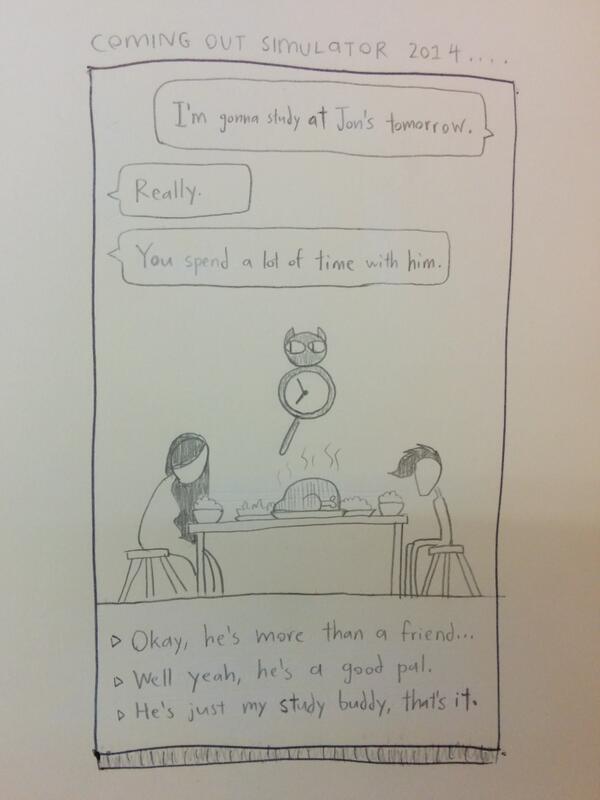 COMING OUT SIMULATOR 2014....
I'm gonna study at Jon's tomorrow.
Really.
You spend a lot of time with him.
▷ Okay, he's more than a friend...
▷ Well yeah, he's a good pal.
▷ He's just my study buddy, that's it.